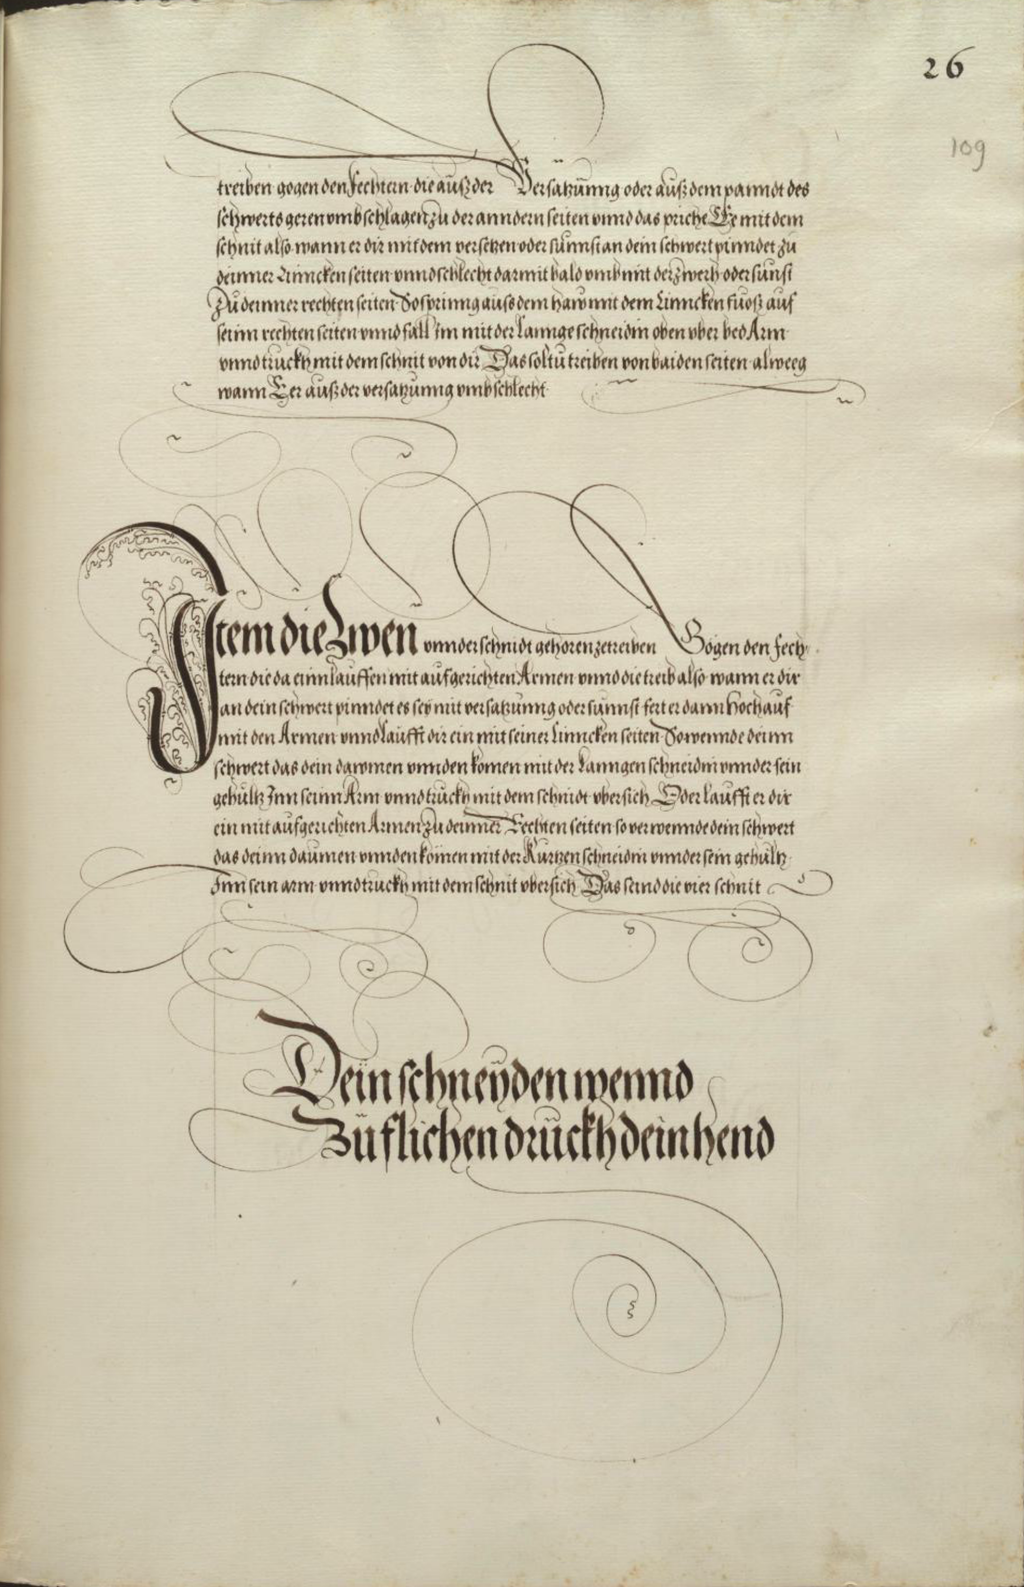 26
109
treiben gogen den fechtern die auß der Versatzūnng oder aūß dem panndt des
schwerts geren vmbschlagen zu der anndern seiten vnnd das priche Ee mit dem
schnit also wann er dir mit dem versetzen oder sūnnst an dein schwert pinndet zū
deinner Linncken seiten vnnd schlecht darmit bald vmb mit der zwerh oder sunst
Zū deinner rechten seiten So spring auss dem haw mit dem Linncken fuoß auf
seinn rechten seiten vnnd fall Im mit der Lannge schneidin oben vber bed Arm
vnnd truckh mit dem schnit von dir Das soltu treiben von baiden seiten alweeg
wann Eer auß der versatzunng vmbschlecht
Item die Zwen vnnder schnidt gehoren zetreiben Gogen den fech
tern die da einnlauffen mit aufgerichten Armen vnnd die treib also wann er dir
an dein schwert pinndet es sey mit versatzūnng oder sūnnst fert er dann hoch auf
mit den Armen vnnd laufft dir ein mit seiner Linncken seiten So wennde deinn
schwert das dein dawmen vnnden komen mit der Lanngen schneidin vnnder sein
gehūltz Inn seinn Arm vnnd truckh mit dem schnidt vbersich Oder laufft er dir
ein mit aufgerichten Armen Zū deinner Rechten seiten so verwennde dein schwert
das deinn daumen vnnden komen mit der Kurtzen schneidin vnnder sein gehūltz
Inn sein arm vnnd truckh mit dem schnit vbersich Das seind die vier schnit
Dein schneyden wennd
Zū flichen drūckh dein hend